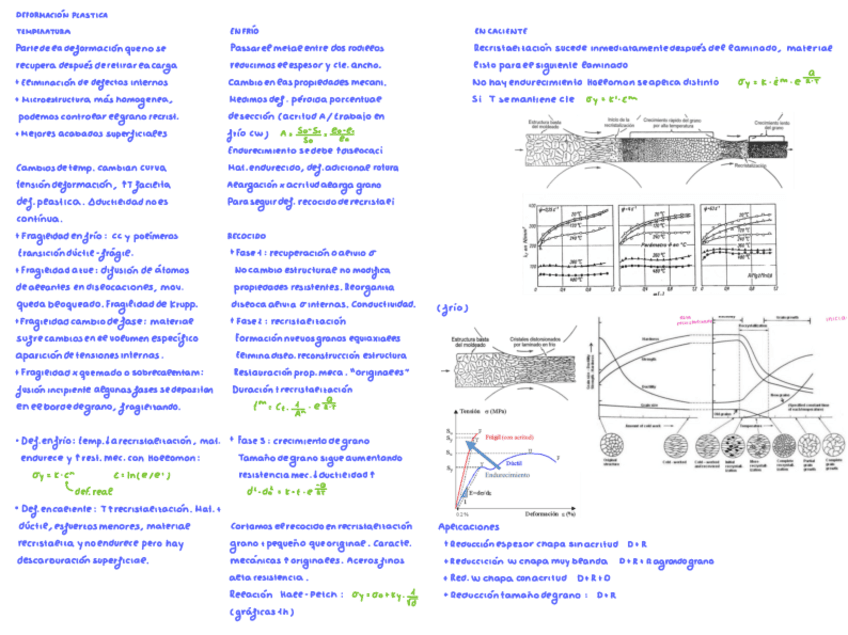 DEFORMACIÓN PLASTICA
TEMPERATURA
Parte de la deformación que no se
recupera después de retirar la carga
+ Eliminación de defectos internos
+ Microestructura más homogenea,
podemos controlar el grano recrist.
+ Mejores acabados superficiales
Cambios de temp. cambian curva
tensión deformación, ↑T facilita
def. plastica. Ductilidad no es
continua.
+ Fragilidad en frío: cc y polímeros
transición dúctil-frágil.
+ Fragilidad azul: difusión de átomos
de aleantes en dislocaciones, mov.
queda bloqueado. Fragilidad de Krupp.
+ Fragilidad cambio de fase: material
sufre cambios en el volumen específico
aparición de tensiones internas.
+ Fragilidad x quemado o sobrecalentam:
fusión incipiente algunas fases se depositan
en el borde de grano, fragilizando.
• Def. en frío: temp. ↓ a recristalización, mat.
endurece y ↑ rest. mec. con Hollomon:
σy = K · ε^m ε = ln(e/e')
def. real
• Def. en caliente: T ↑ recristalización. Mat. +
dúctil, esfuertos menores, material
recristaliza y no endurece pero hay
descarburación superficial.
EN FRÍO
Pasar el metal entre dos rodillos
reducimos el espesor y cte. ancho.
Cambio en las propiedades mecani.
Medimos def. pérdida porcentual
de sección (acritud A / trabajo en
frío CW) A = S0-S1/S0 = e0-e1/e0
Endurecimiento se debe ↑ dislocaci
Mat. endurecido, def. adicional rotura
Alargación x acritud alarga grano
Para seguir def. recocido de recristali
RECOCIDO
+ Fase 1: recuperación o alivio σ
No cambio estructural no modifica
propiedades resistentes. Reorganita
disloca alivio σ internas. Conductividad.
+ Fase 2: recristalización
Formación nuevos granos equiaxiales
Elimina dislo. reconstrucción estructura
Restauración prop. meca. "originales"
Duración t recristalización
+ Fase 3: crecimiento de grano
Tamaño de grano sigue aumentando
resistencia mec. ↓ ductilidad ↑
Cortamos el recocido en recristalización
grano + pequeño que original. Caracte.
mecánicas ↑ originales. Aceros finos
alta resistencia.
Relación Hall-Petch: σy = σ0 + Ky · 1/√d
(gráficas 1h)
EN CALIENTE
Recristalización sucede inmediatamente después del laminado, material
listo para el siguiente laminado
No hay endurecimiento Hollomon se aplica distinto
Si T se mantiene cte σy = K' · ε^m
Estructura basta
del moldeado
Inicio de la
recristalización
Crecimiento rápido del grano
por alta temperatura
Crecimiento lento
del grano
Recristalización
(frío)
Estructura basta
del moldeado
Cristales distorsionados
por laminado en frío
Tensión σ (MPa)
Frágil (con acritud)
Dúctil
Endurecimiento
E=dσ/dε
0.2 %
Deformación ε (%)
Hardness
Strength
Ductility
Temperature
Aplicaciones
+ Reducción espesor chapa sin acritud D+R
+ Reducción w chapa muy blanda D+R+Agrando grano
+ Red. w chapa con acritud D+R+D
+ Reducción tamaño de grano: D+R